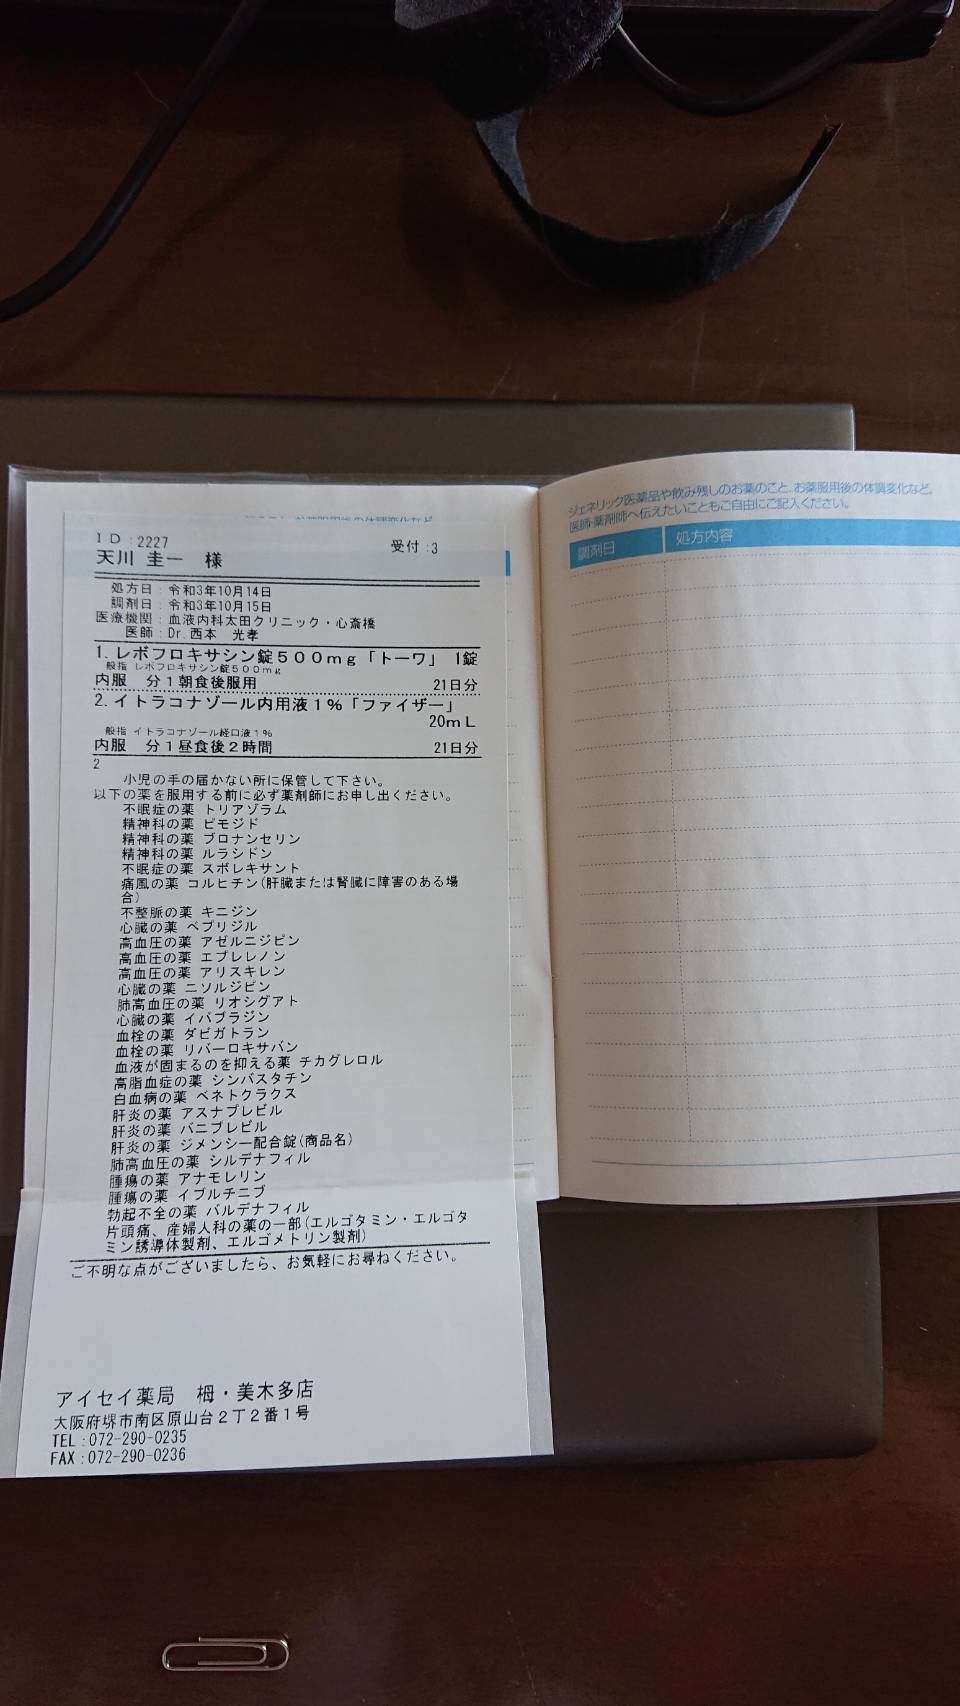 ID:2227
受付:3
天川 圭一 様
処方日:令和3年10月14日
調剤日:令和3年10月15日
医療機関:血液内科太田クリニック・心斎橋
医師:Dr.西本 光孝
1.レボフロキサシン錠500mg「トーワ」 1錠
般指 レボフロキサシン錠500mg
内服 分1朝食後服用 21日分
2.イトラコナゾール内用液1%「ファイザー」
20mL
般指 イトラコナゾール経口液1%
内服 分1昼食後2時間 21日分
2
小児の手の届かない所に保管して下さい。
以下の薬を服用する前に必ず薬剤師にお申し出ください。
不眠症の薬 トリアゾラム
精神科の薬 ピモジド
精神科の薬 ブロナンセリン
精神科の薬 ルラシドン
不眠症の薬 スボレキサント
痛風の薬 コルヒチン(肝臓または腎臓に障害のある場
合)
不整脈の薬 キニジン
心臓の薬 ベプリジル
高血圧の薬 アゼルニジピン
高血圧の薬 エプレレノン
高血圧の薬 アリスキレン
心臓の薬 ニソルジピン
肺高血圧の薬 リオシグアト
心臓の薬 イバブラジン
血栓の薬 ダビガトラン
血栓の薬 リバーロキサバン
血液が固まるのを抑える薬 チカグレロル
高脂血症の薬 シンバスタチン
白血病の薬 ベネトクラクス
肝炎の薬 アスナプレビル
肝炎の薬 バニプレビル
肝炎の薬 ジメンシー配合錠(商品名)
肺高血圧の薬 シルデナフィル
腫瘍の薬 アナモレリン
腫瘍の薬 イブルチニブ
勃起不全の薬 バルデナフィル
片頭痛、産婦人科の薬の一部(エルゴタミン・エルゴタ
ミン誘導体製剤、エルゴメトリン製剤)
ご不明な点がございましたら、お気軽にお尋ねください。
アイセイ薬局 栂・美木多店
大阪府堺市南区原山台2丁2番1号
TEL:072-290-0235
FAX:072-290-0236
ジェネリック医薬品や飲み残しのお薬のこと、お薬服用後の体調変化など、
医師・薬剤師へ伝えたいこともご自由にご記入ください。
調剤日 処方内容